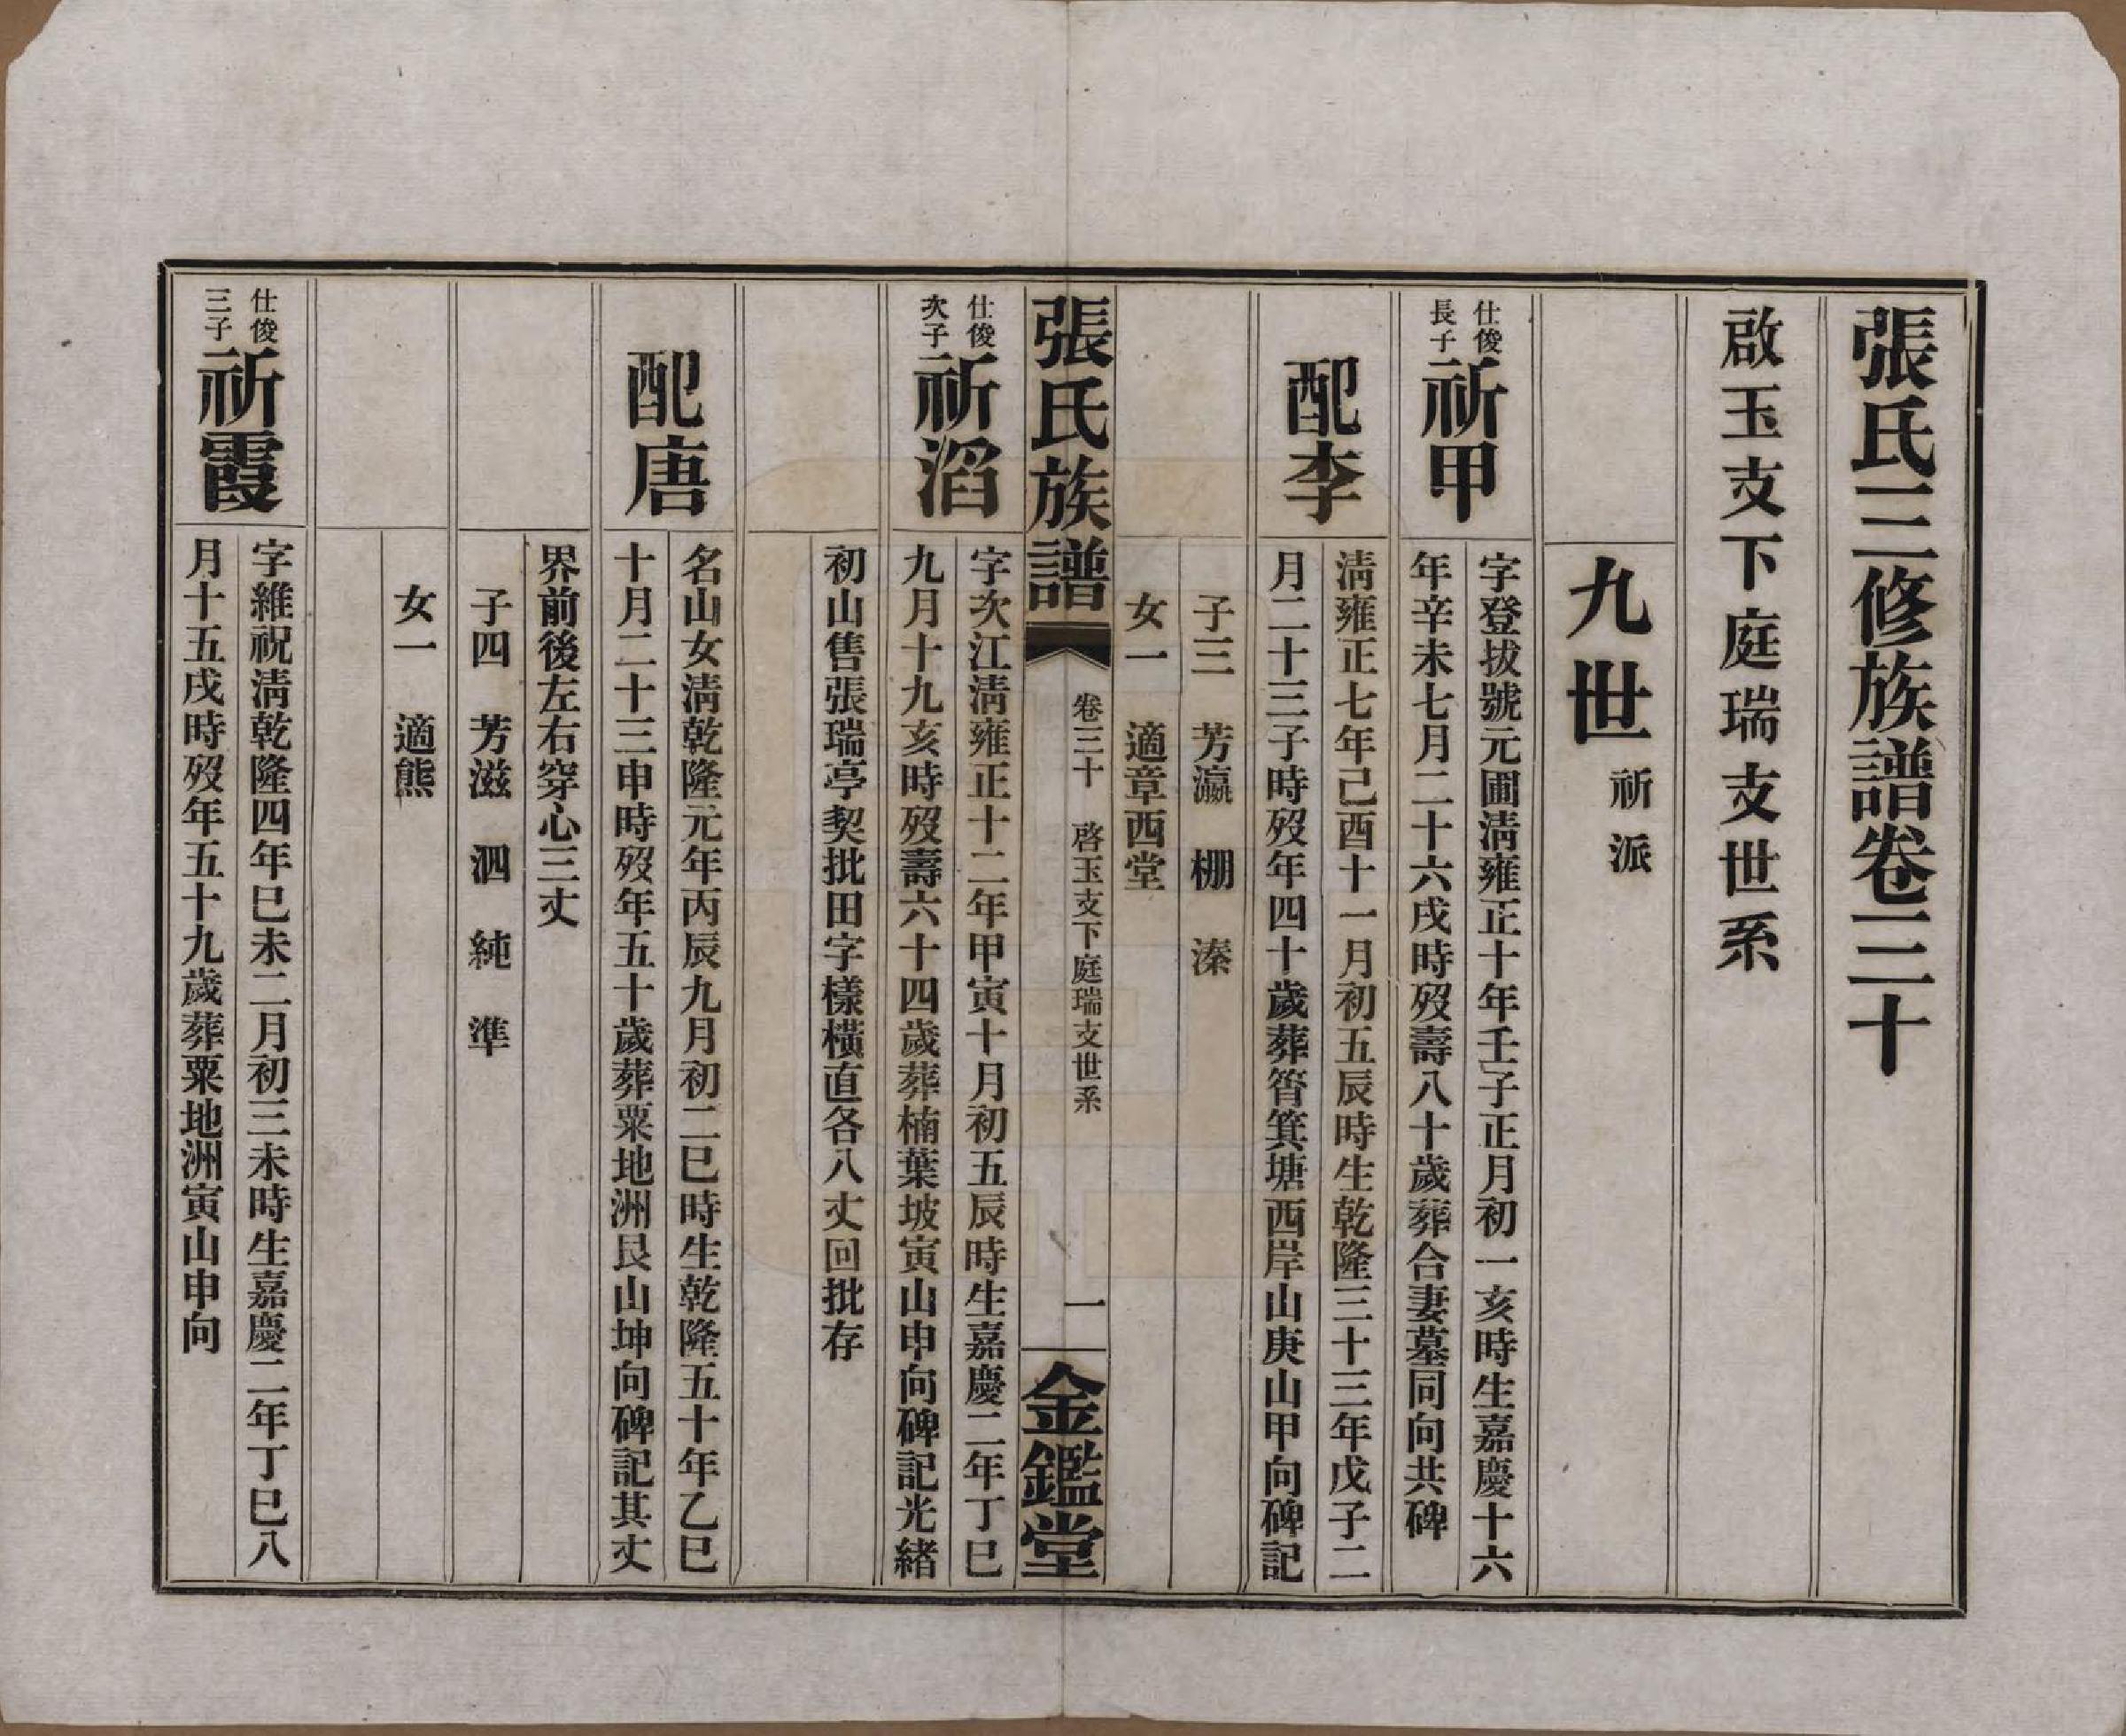 張氏三修族譜卷三十
啟玉支下庭瑞支世系
九世 祈派
仕俊
長子
祈甲
字登拔號元圃淸雍正十年壬子正月初一亥時生嘉慶十六
年辛未七月二十六戌時歿壽八十歲葬合妻墓同向共碑
配李
淸雍正七年己酉十一月初五辰時生乾隆三十三年戊子二
月二十三子時歿年四十歲葬筲箕塘西岸山庚山甲向碑記
子三 芳瀛 棚 溱
女一 適章西堂
張氏族譜
卷三十 啓玉支下庭瑞支世系
一
金鑑堂
仕俊
次子
祈滔
字次江淸雍正十二年甲寅十月初五辰時生嘉慶二年丁巳
九月十九亥時歿壽六十四歲葬楠葉坡寅山申向碑記光緒
初山售張瑞亭契批田字樣橫直各八丈回批存
配唐
名山女淸乾隆元年丙辰九月初二巳時生乾隆五十年乙巳
十月二十三申時歿年五十歲葬粟地洲艮山坤向碑記其丈
界前後左右穿心三丈
子四 芳滋 泗 純 準
女一 適熊
仕俊
三子
祈霞
字維祝淸乾隆四年巳未二月初三未時生嘉慶二年丁巳八
月十五戌時歿年五十九歲葬粟地洲寅山申向